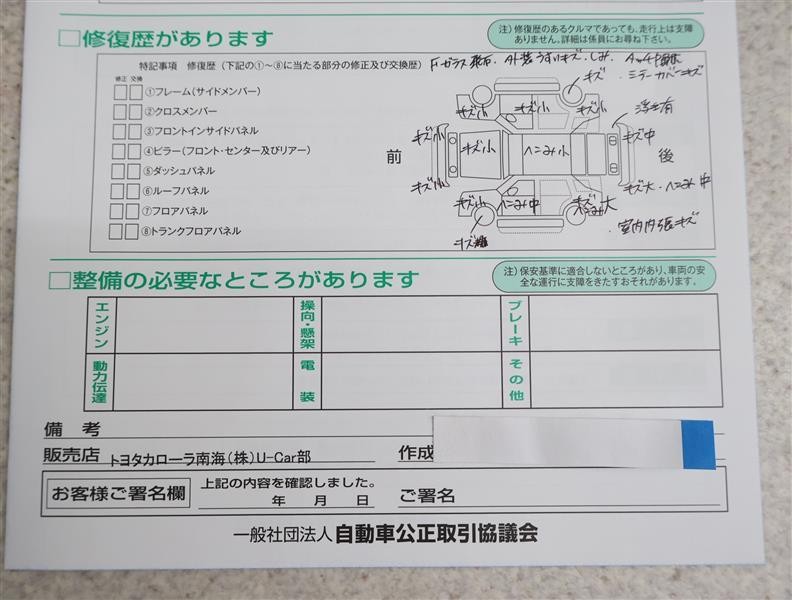 □修復歴があります
注）修復歴のあるクルマであっても、走行上は支障
ありません。詳細は係員にお尋ね下さい。
特記事項　修復歴（下記の①～⑧に当たる部分の修正及び交換歴）
Fガラス飛石．外装うすいキズ．しみ．
キズ　ミラーカバーキズ
修正 交換
①フレーム（サイドメンバー）
②クロスメンバー
③フロントインサイドパネル
④ピラー（フロント・センター及びリアー）
⑤ダッシュパネル
⑥ルーフパネル
⑦フロアパネル
⑧トランクフロアパネル
キズ小　キズ小　キズ小
キズ小　キズ中
前　キズ小　ヘコみ小　後
キズ小　キズ大・ヘコみ中
キズ小　ヘコみ中　キズ大
ヘコみ大
．室内内張キズ
□整備の必要なところがあります
注）保安基準に適合しないところがあり、車両の安
全な運行に支障をきたすおそれがあります。
エンジン　操向・懸架　ブレーキ
動力伝達　電装　その他
備　考
販売店　トヨタカローラ南海（株）U-Car部　作成
お客様ご署名欄　上記の内容を確認しました。
年　月　日　ご署名
一般社団法人 自動車公正取引協議会